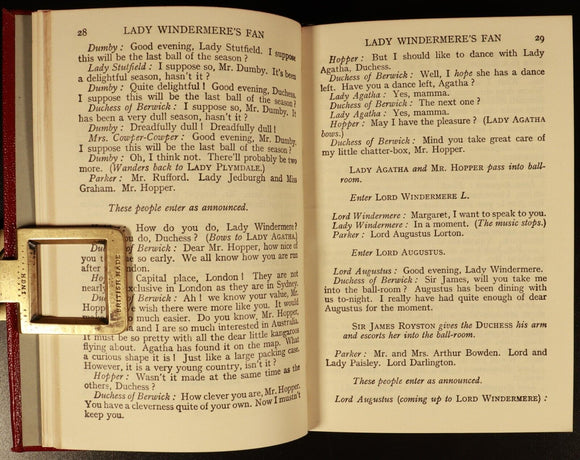 28 LADY WINDERMERE'S FAN
Dumby: Good evening, Lady Stutfield. I suppose
this will be the last ball of the season?
Lady Stutfield: I suppose so, Mr. Dumby. It's been
a delightful season, hasn't it?
Dumby: Quite delightful! Good evening, Duchess.
I suppose this will be the last ball of the season?
Duchess of Berwick: I suppose so, Mr. Dumby. It
has been a very dull season, hasn't it?
Dumby: Dreadfully dull! Dreadfully dull!
Mrs. Cowper-Cowper: Good evening, Mr. Dumby.
I suppose this will be the last ball of the season?
Dumby: Oh, I think not. There'll probably be two
more. (Wanders back to LADY PLYMDALE.)
Parker: Mr. Rufford. Lady Jedburgh and Miss
Graham. Mr. Hopper.
These people enter as announced.
How do you do, Lady Windermere?
you do, Duchess? (Bows to LADY AGATHA.)
Duchess of Berwick: Dear Mr. Hopper, how nice of
you so early. We all know how you are run
after London.
Capital place, London! They are not
nearly exclusive in London as they are in Sydney.
Duchess of Berwick: Ah! we know your value, Mr.
We wish there were more like you. It would
so much easier. Do you know, Mr. Hopper,
and I are so much interested in Australia.
It must be so pretty with all the dear little kangaroos
flying about. Agatha has found it on the map. What
a curious shape it is! Just like a large packing case.
However, it is a very young country, isn't it?
Hopper: Wasn't it made at the same time as the
others, Duchess?
Duchess of Berwick: How clever you are, Mr. Hopper.
You have a cleverness quite of your own. Now I mustn't
keep you.
BRITISH MADE
LADY WINDERMERE'S FAN 29
Hopper: But I should like to dance with Lady
Agatha, Duchess.
Duchess of Berwick: Well, I hope she has a dance
left. Have you a dance left, Agatha?
Lady Agatha: Yes, mamma.
Duchess of Berwick: The next one?
Lady Agatha: Yes, mamma.
Hopper: May I have the pleasure? (LADY AGATHA
bows.)
Duchess of Berwick: Mind you take great care of
my little chatter-box, Mr. Hopper.
LADY AGATHA and MR. HOPPER pass into ball-
room.
Enter LORD WINDERMERE L.
Lord Windermere: Margaret, I want to speak to you.
Lady Windermere: In a moment. (The music stops.)
Parker: Lord Augustus Lorton.
Enter LORD AUGUSTUS.
Lord Augustus: Good evening, Lady Windermere.
Duchess of Berwick: Sir James, will you take me
into the ball-room? Augustus has been dining with
us to-night. I really have had quite enough of dear
Augustus for the moment.
SIR JAMES ROYSTON gives the DUCHESS his arm
and escorts her into the ball-room.
Parker: Mr. and Mrs. Arthur Bowden. Lord and
Lady Paisley. Lord Darlington.
These people enter as announced.
Lord Augustus (coming up to LORD WINDERMERE):